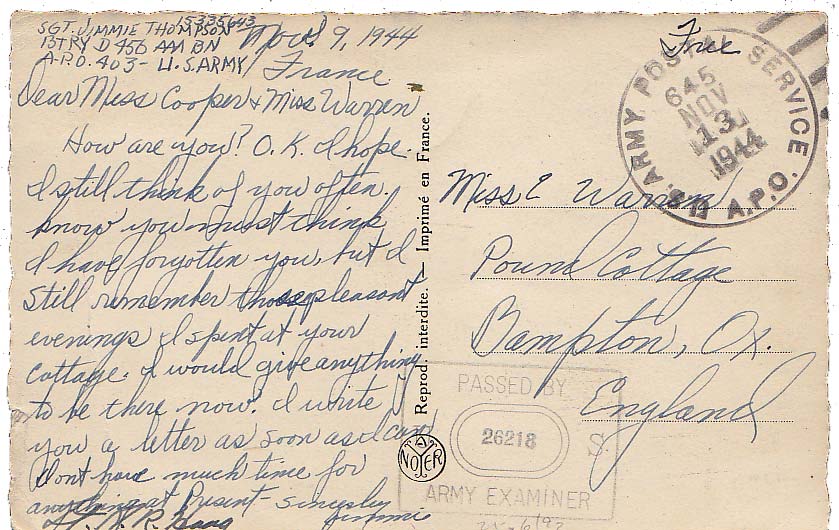 SGT. JIMMIE THOMPSON 15335643
BTRY D 456 AAA BN
A.P.O. 403 - U.S. ARMY
Nov. 9, 1944
France
Dear Miss Cooper & Miss Warren
How are you? O.K. I hope.
I still think of you often.
know you must think
I have forgotten you, but I
still remember those pleasant
evenings I spent at your
cottage. I would give anything
to be there now. I write
you a letter as soon as I can
dont have much time for
anything at Present - Sincerely
Jimmie
Reprod. interdite. — Imprimé en France.
NOYER
Free
U.S. ARMY POSTAL SERVICE
645
NOV
13
1944
A.P.O.
Miss E Warren
Pound Cottage
Bampton, Ox.
England
PASSED BY
26218
S.
ARMY EXAMINER